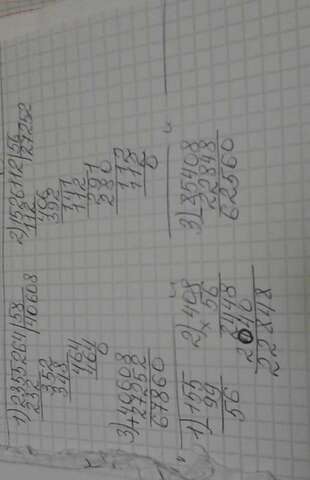 1) 2355264 | 58
232 | 40608
352
348
464
464
0
2) 1526112 | 56
112 | 27252
406
392
141
112
291
280
112
112
0
3) 40608
+ 27252
67860
1) 155
- 99
56
2) 408
× 56
2448
2040
22848
3) 85408
- 22848
62560